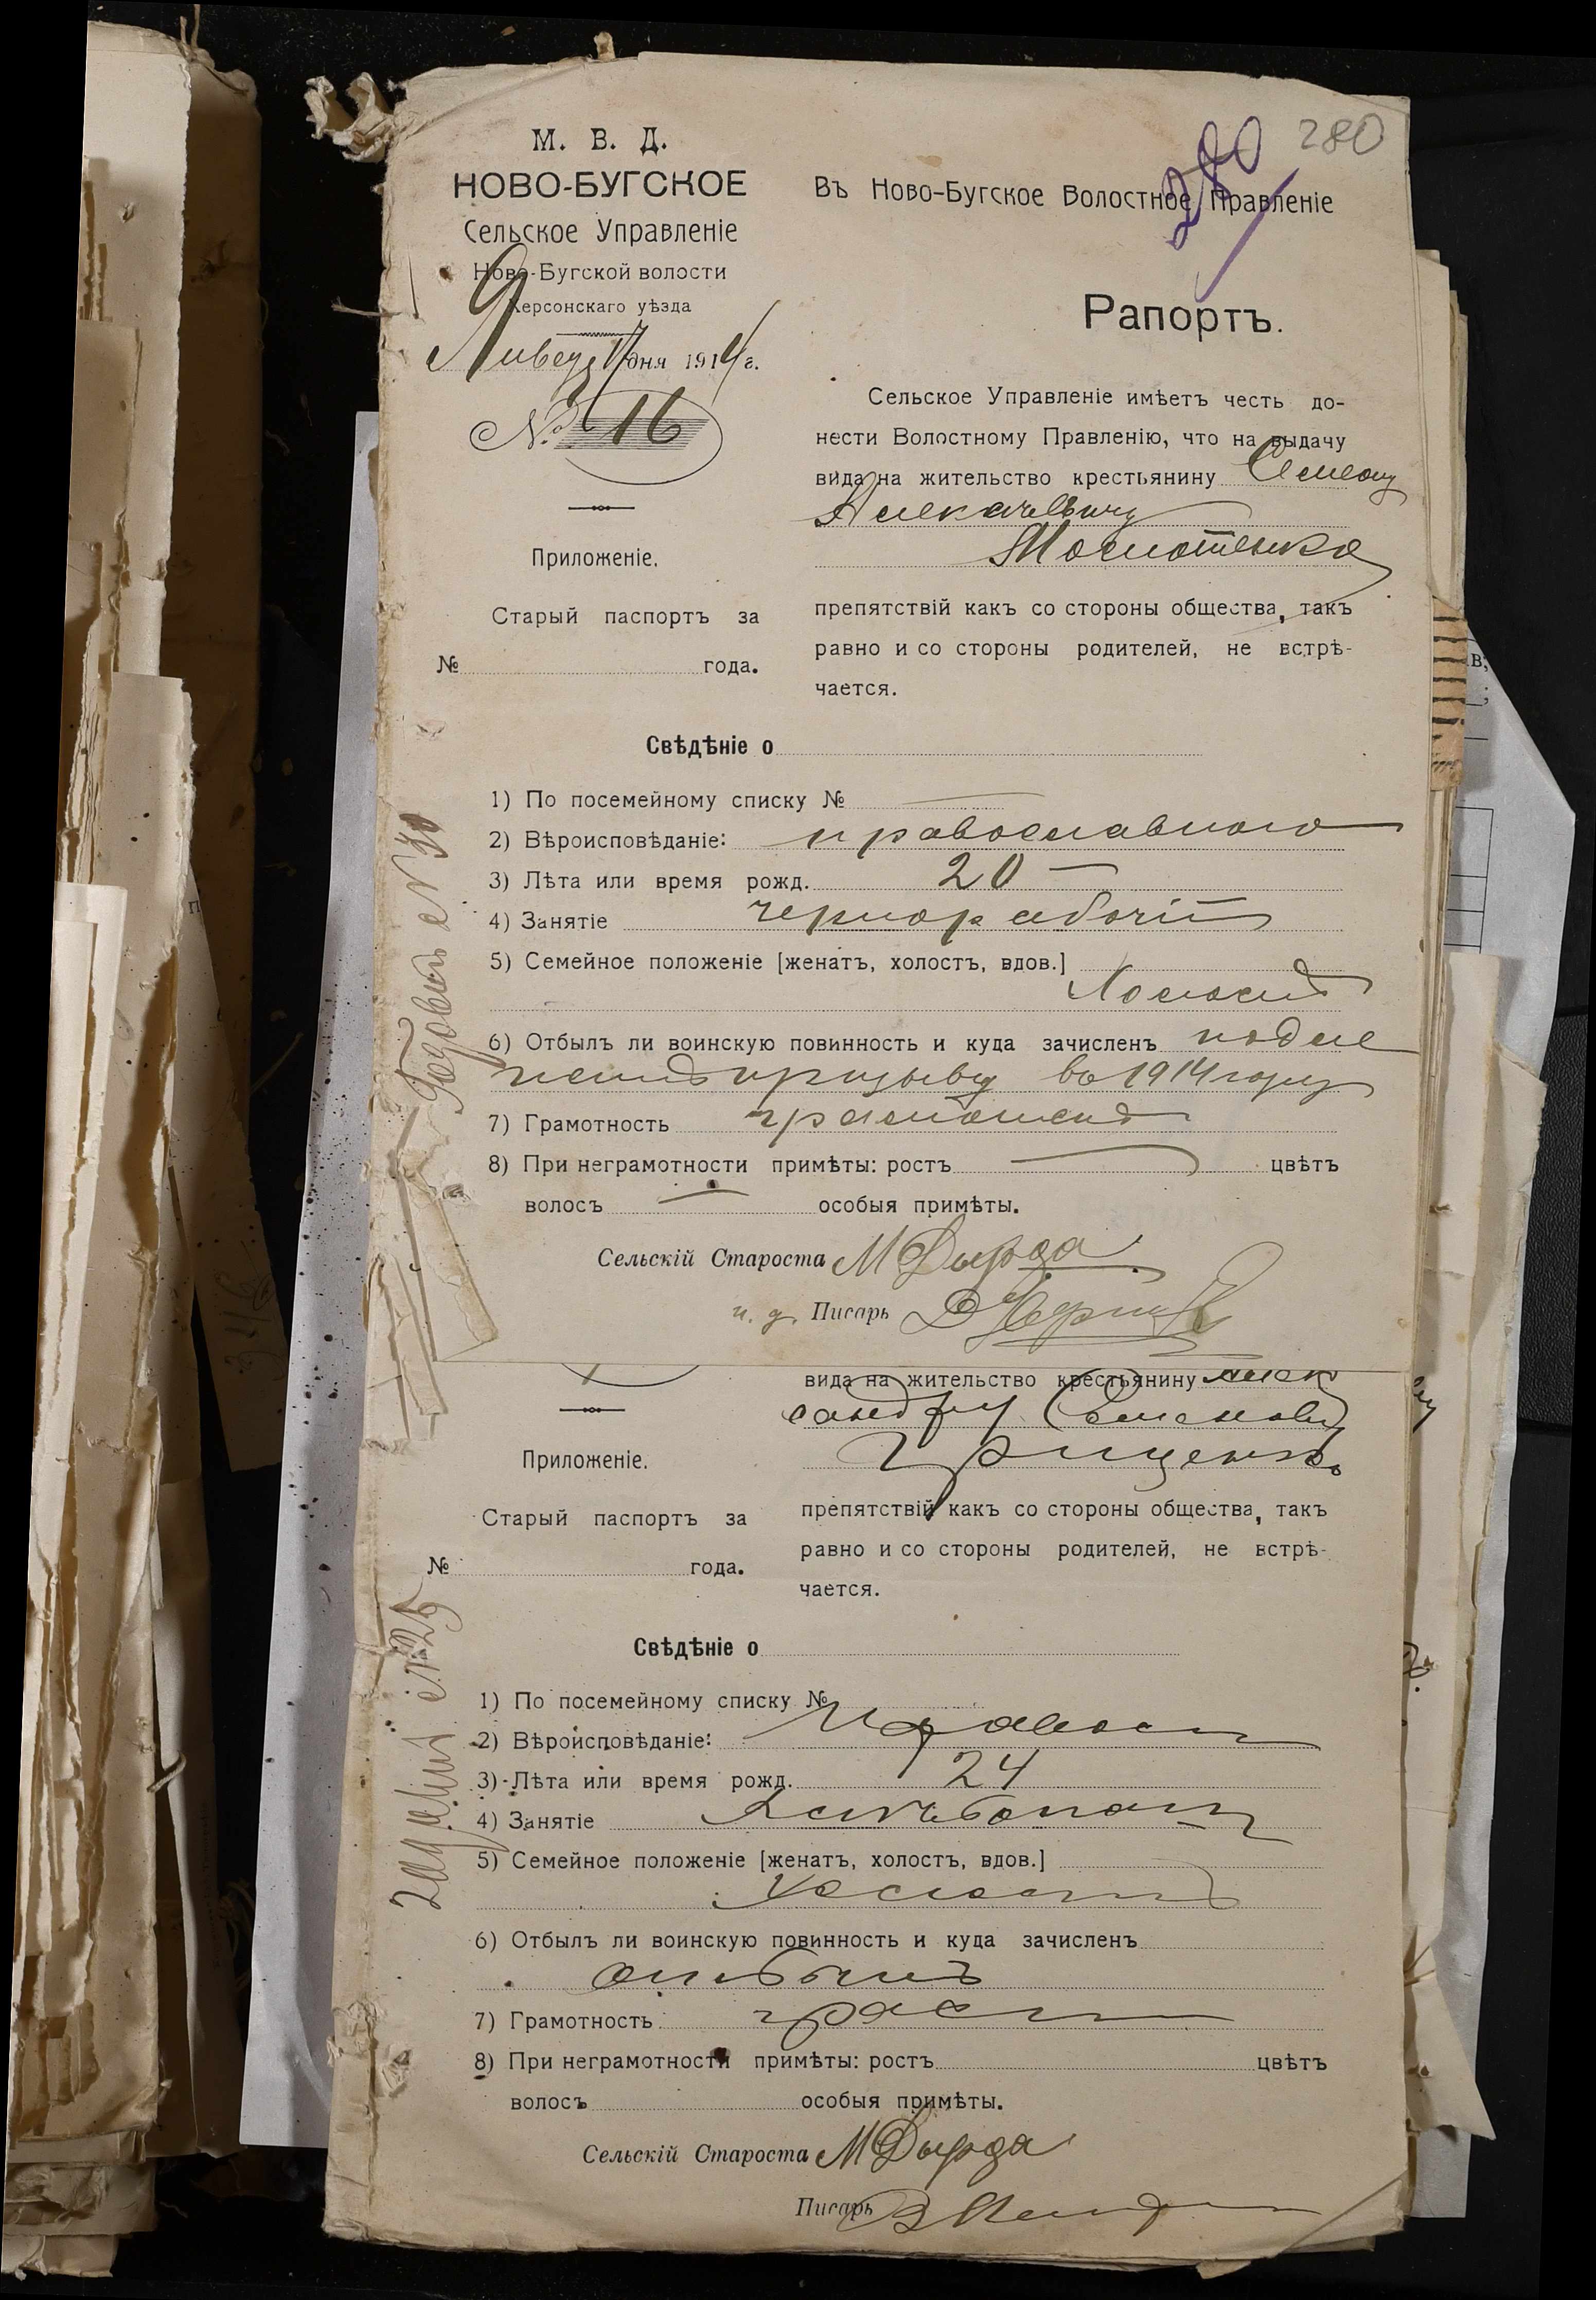 280
280
М. В. Д.
НОВО-БУГСКОЕ
Сельское Управленіе
Ново-Бугской волости
Херсонскаго уѣзда
Января 17 дня 1914 г.
№ 16
Въ Ново-Бугское Волостное Правленіе
Рапортъ.
Сельское Управленіе имѣетъ честь до-
нести Волостному Правленію, что на выдачу
вида на жительство крестьянину Семену
препятствій какъ со стороны общества, такъ
равно и со стороны родителей, не встрѣ-
чается.
Приложеніе.
Старый паспортъ за
№ года.
Свѣдѣніе о
1) По посемейному списку №
2) Вѣроисповѣданіе: православнаго
3) Лѣта или время рожд. 20
4) Занятіе чернорабочій
5) Семейное положеніе [женатъ, холостъ, вдов.]
Холостъ
6) Отбылъ ли воинскую повинность и куда зачисленъ подле
житъ призыву въ 1914 году
7) Грамотность грамотенъ
8) При неграмотности примѣты: ростъ цвѣтъ
волосъ особыя примѣты.
Сельскій Староста М Дырда
и. д. Писарь
Годовый № 30
вида на жительство крестьянину Алек
сандру Семенову
Грищенко
препятствій какъ со стороны общества, такъ
равно и со стороны родителей, не встрѣ-
чается.
Приложеніе.
Старый паспортъ за
№ года.
Свѣдѣніе о
1) По посемейному списку №
2) Вѣроисповѣданіе: Правосл
3) Лѣта или время рожд. 24
4) Занятіе Хлѣбопаш
5) Семейное положеніе [женатъ, холостъ, вдов.]
Холостъ
6) Отбылъ ли воинскую повинность и куда зачисленъ
отбылъ
7) Грамотность грам
8) При неграмотности примѣты: ростъ цвѣтъ
волосъ особыя примѣты.
Сельскій Староста М Дырда
Писарь
№ 25